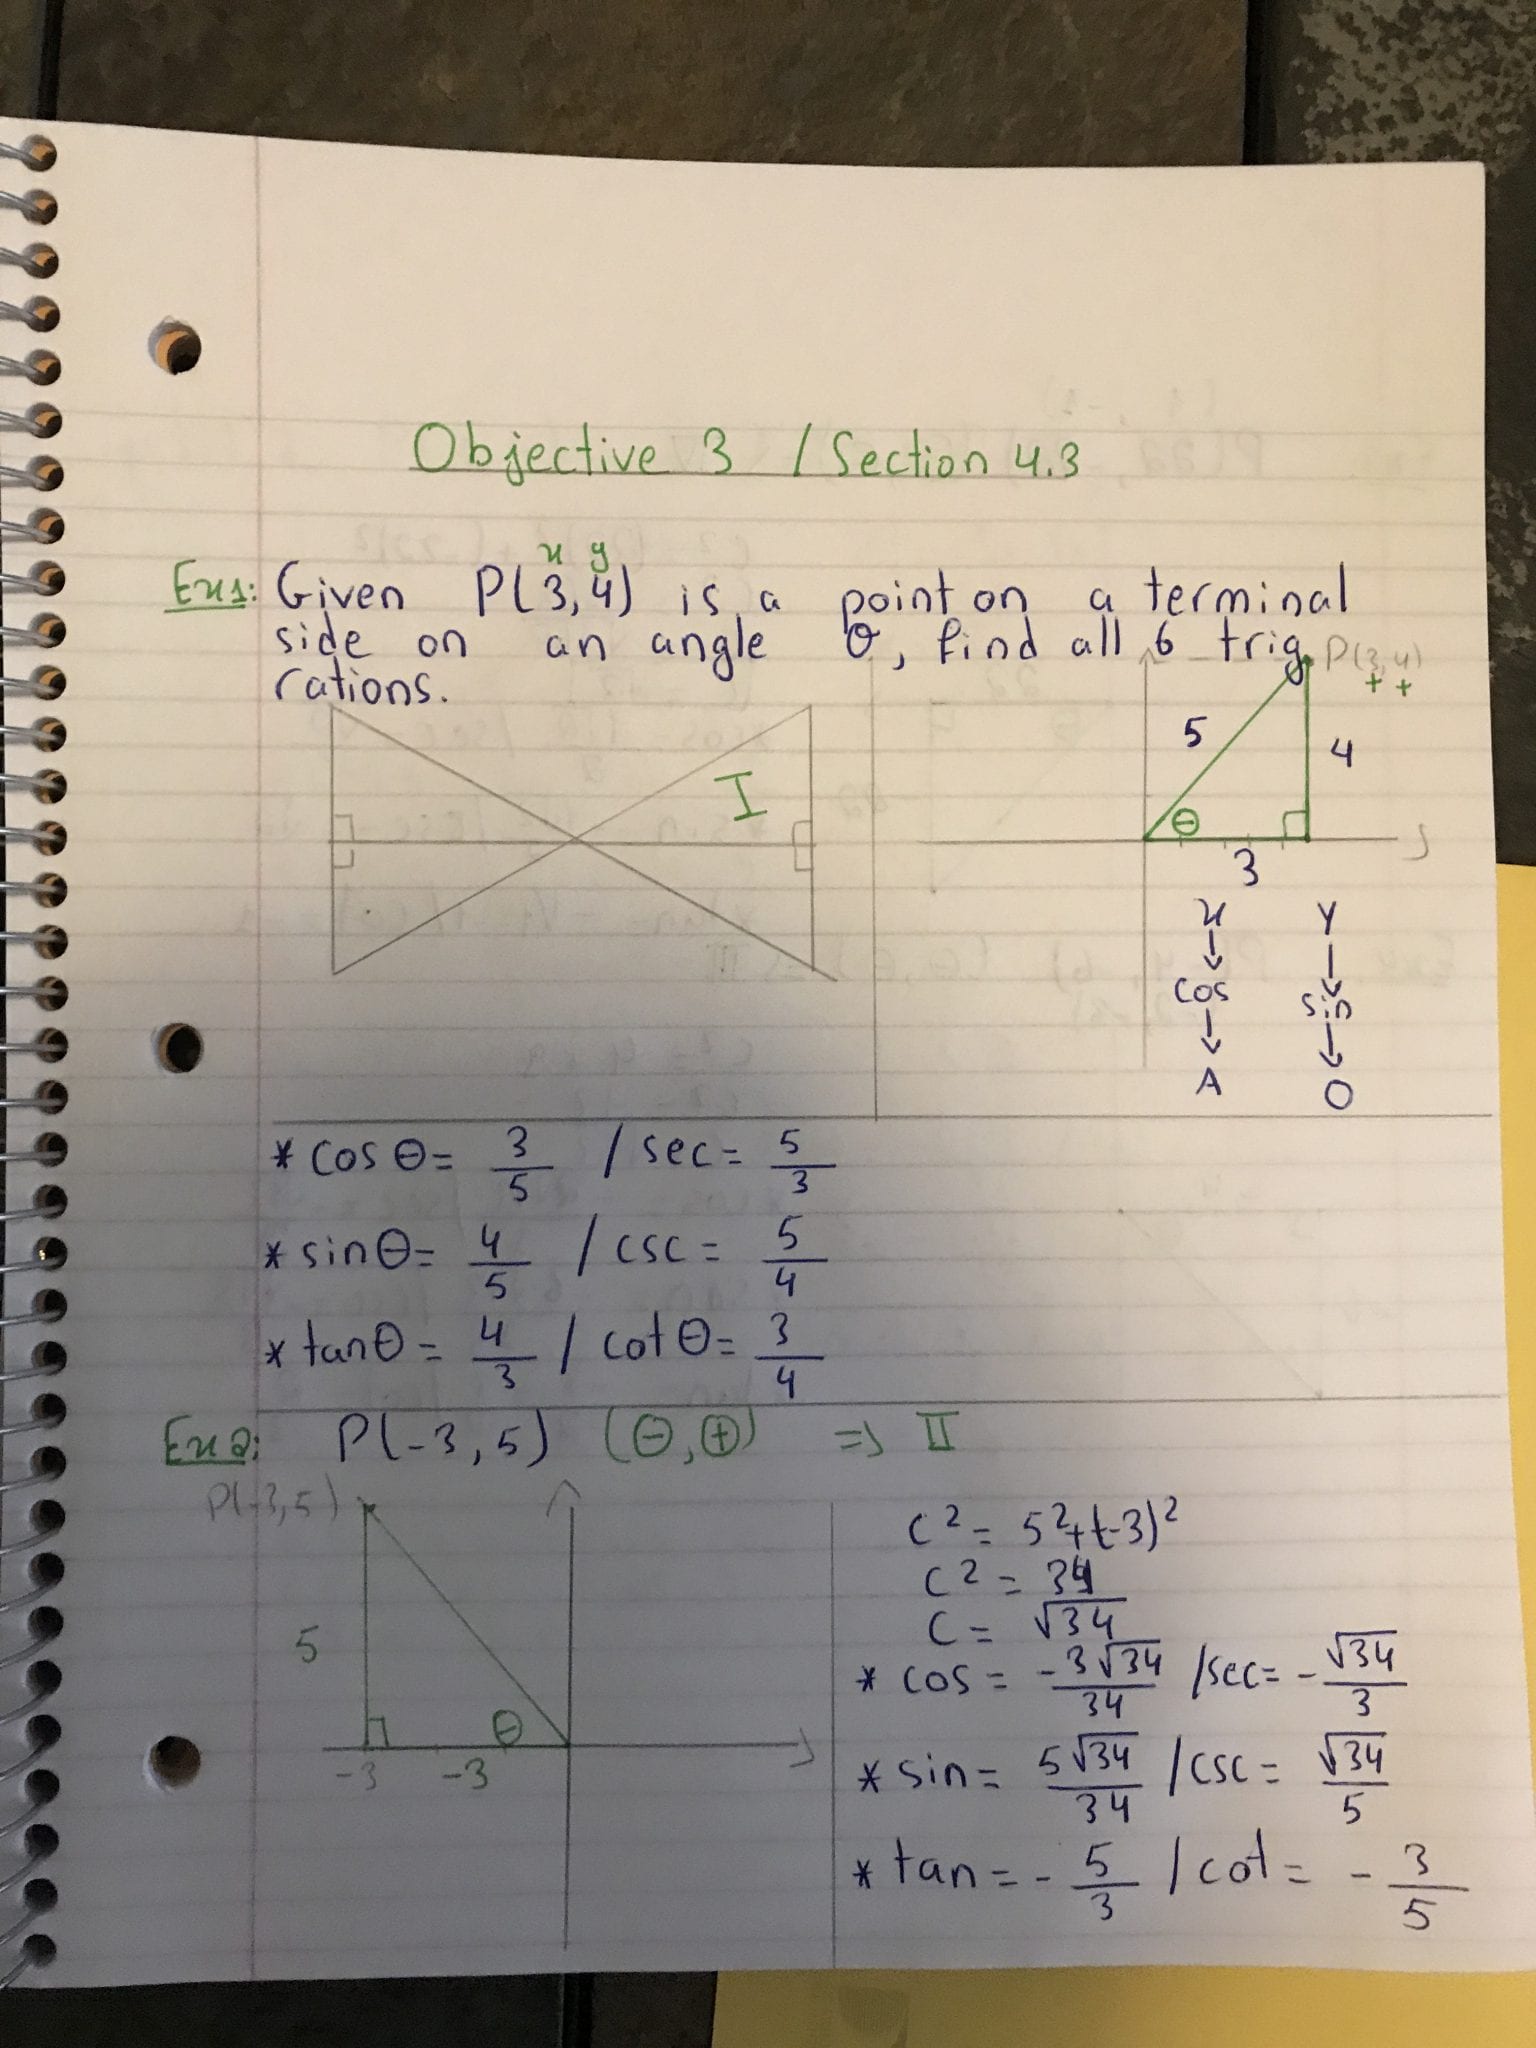 Objective 3 / Section 4.3
x y
Ex1: Given P(3,4) is a point on a terminal
side on an angle θ, find all 6 trig
rations.
P(3,4)
+ +
I
5
4
θ
3
x Y
↓ ↓
cos sin
↓ ↓
A O
* cos θ = 3/5 / sec = 5/3
* sin θ = 4/5 / csc = 5/4
* tan θ = 4/3 / cot θ = 3/4
Ex2: P(-3,5) (⊖,⊕) => II
P(-3,5)
5
θ
-3 -3
c² = 5²+(-3)²
c² = 34
c = √34
* cos = -3√34/34 / sec = -√34/3
* sin = 5√34/34 / csc = √34/5
* tan = -5/3 / cot = -3/5